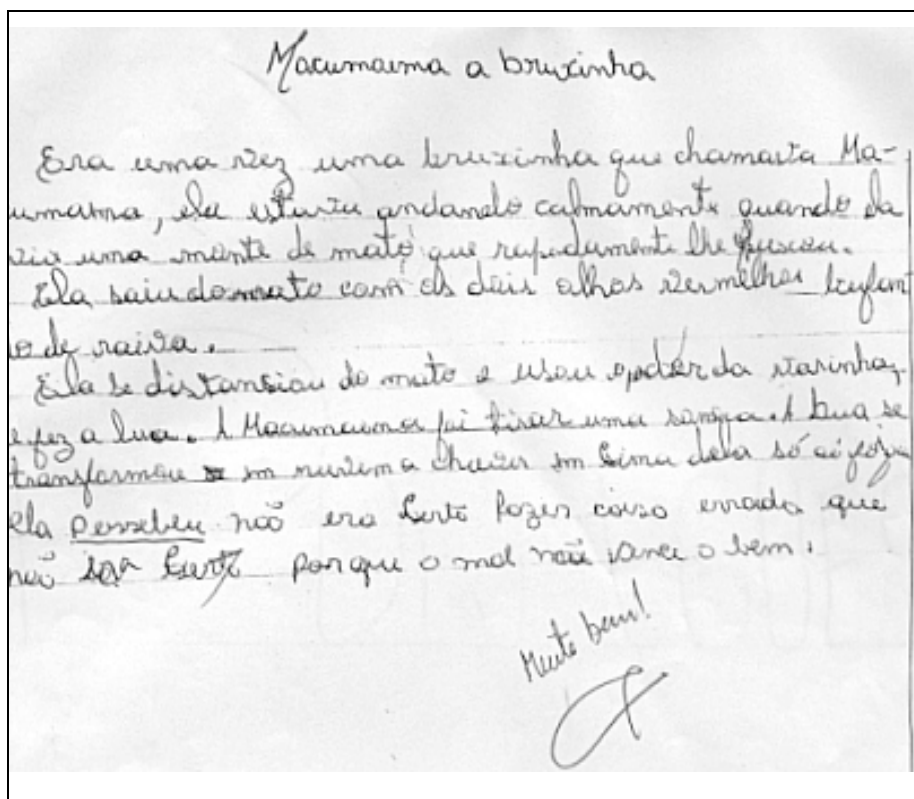 Macumauma a bruxinha
Era uma vez uma bruxinha que chamava Ma-
umauma, ela estava andando calmamente quando ela
viu uma monte de mato que rapidamente lhe
Ela saiu do mato com os dois olhos vermelhos bufan
o de raiva.
Ela se distansiou do mato e usou o poder da varinha,
e fez a lua. A Macumauma foi tirar uma A lua se
transformou em nuvem a chuver em sima dela só ai
ela Dessebeu não era serto fazer coisa errada que
não serto porque o mal não vence o bem.
Muito bem!